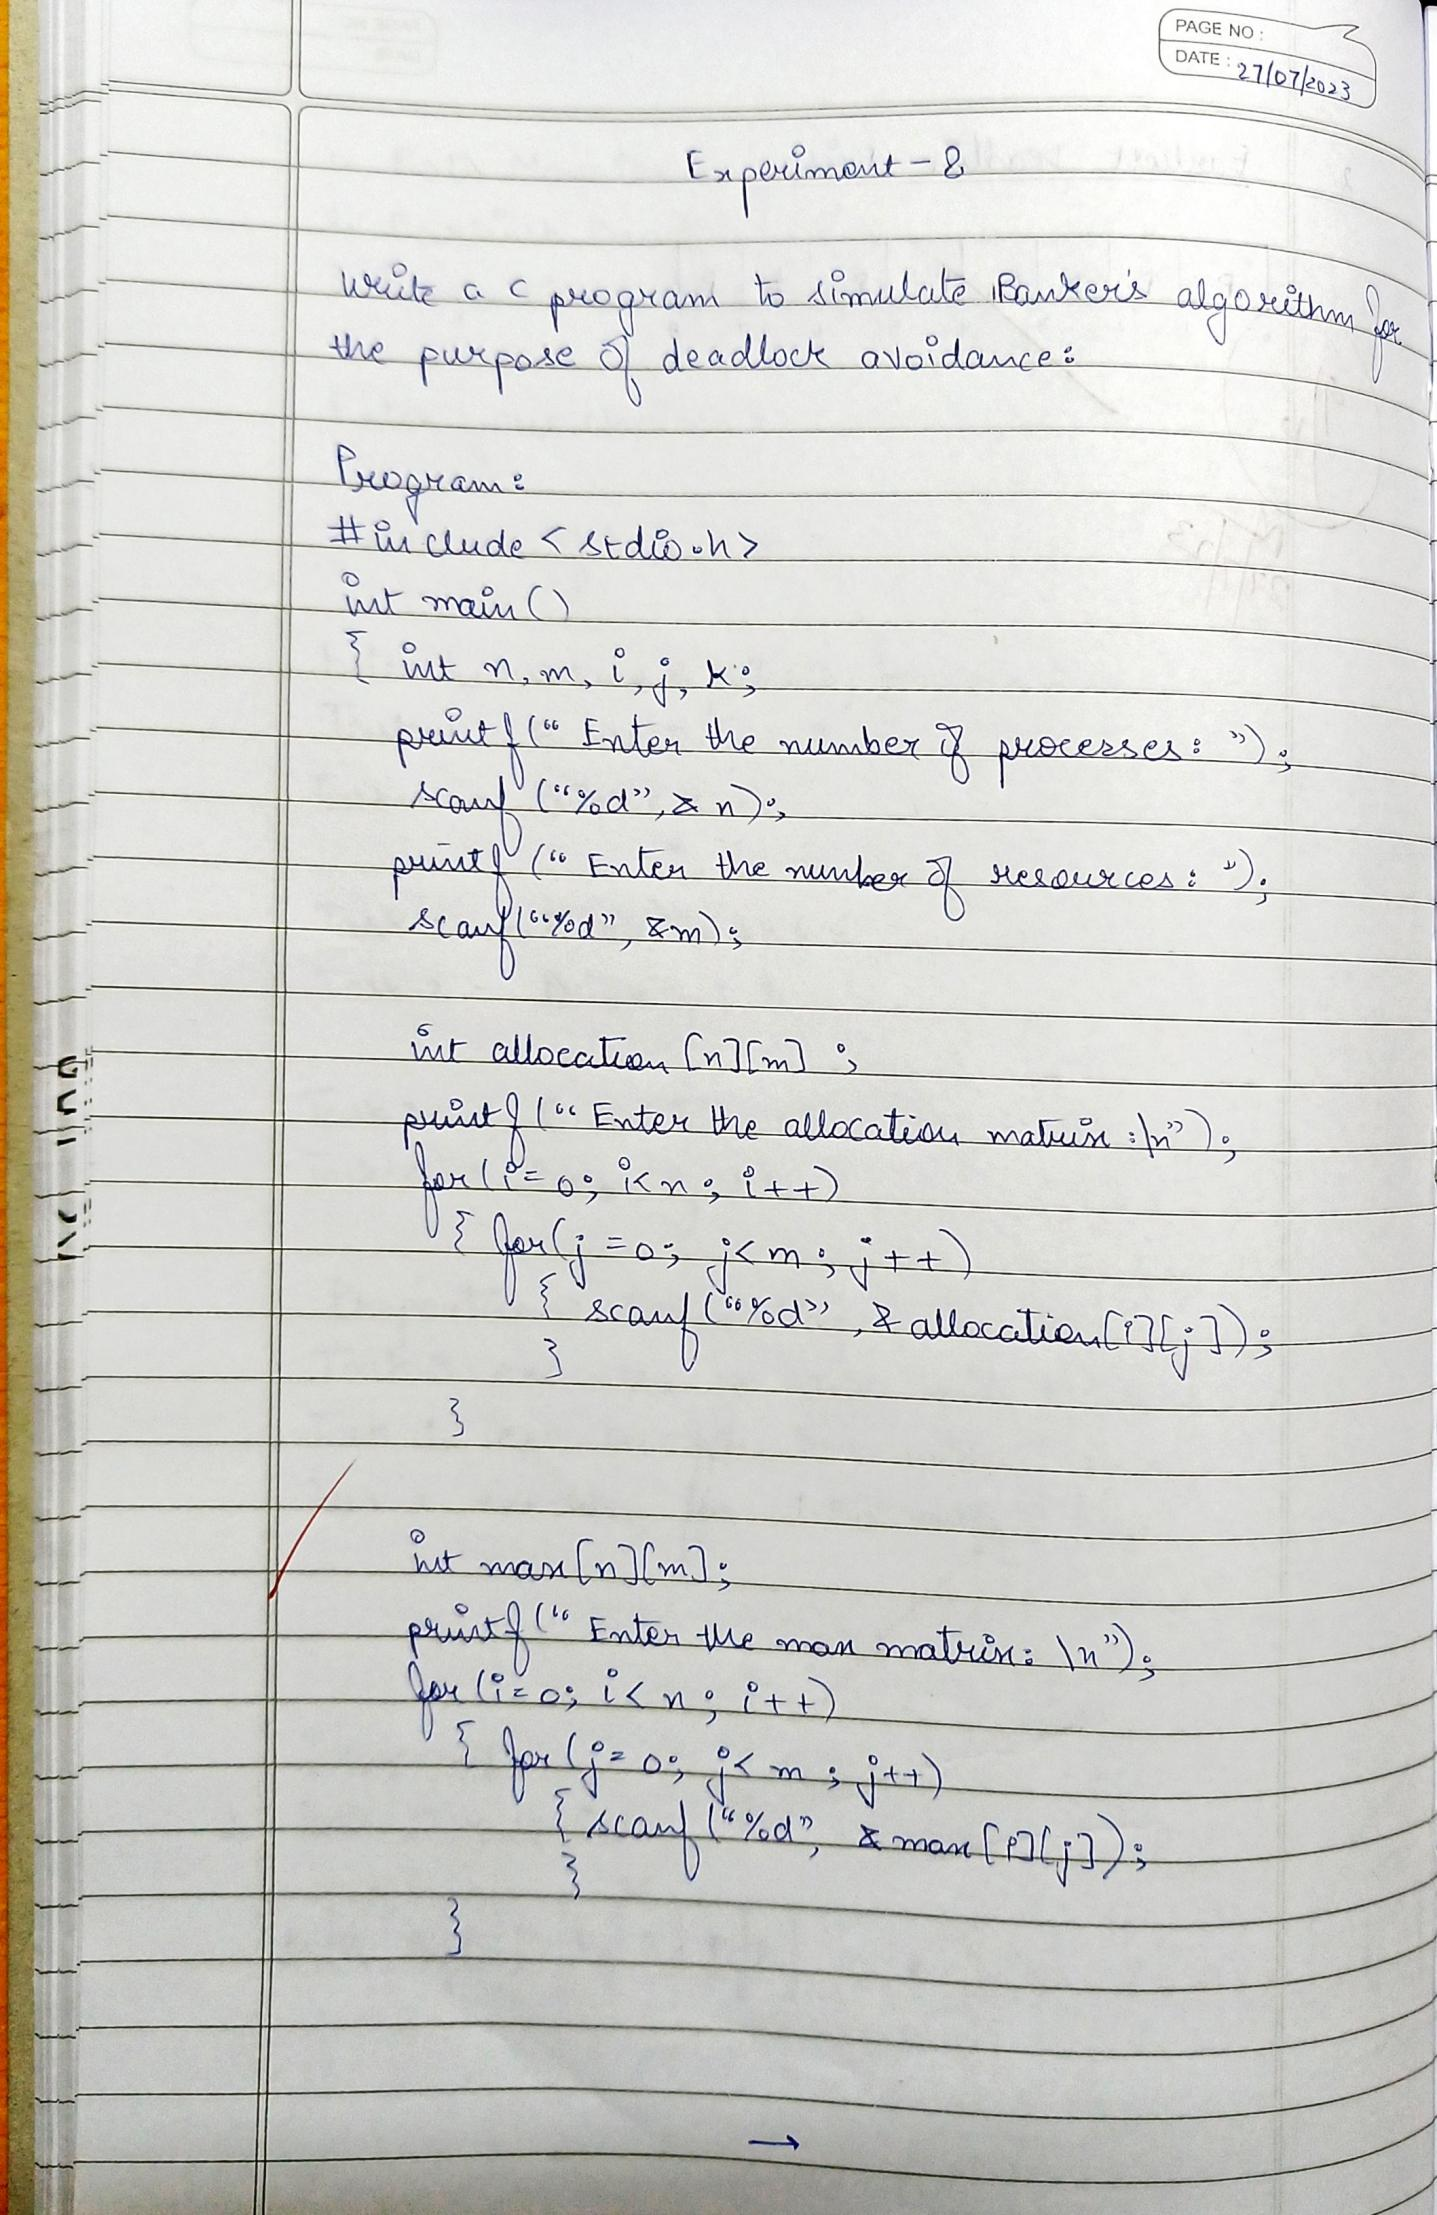 PAGE NO :
DATE : 27/07/2023
Experiment - 8
Write a C program to simulate Banker's algorithm for
the purpose of deadlock avoidance:
Program:
#include <stdio.h>
int main()
{ int n, m, i, j, k;
printf(" Enter the number of processes: ");
scanf ("%d", & n);
printf (" Enter the number of resources: ");
scanf("%d", &m);
int allocation [n][m] ;
printf (" Enter the allocation matrix :\n");
for (i=0; i<n; i++)
{ for(j=0; j<m; j++)
{ scanf ("%d", & allocation[i][j]);
}
}
int max[n][m];
printf (" Enter the max matrix: \n");
for (i=0; i<n; i++)
{ for (j=0; j<m; j++)
{ scanf ("%d", & max[i][j]);
}
}
→